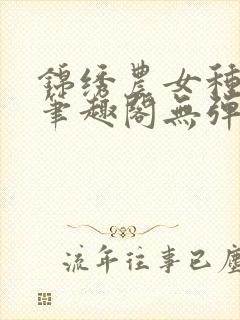 錦绣農女種
筆趣閣無彈
流年往事已塵